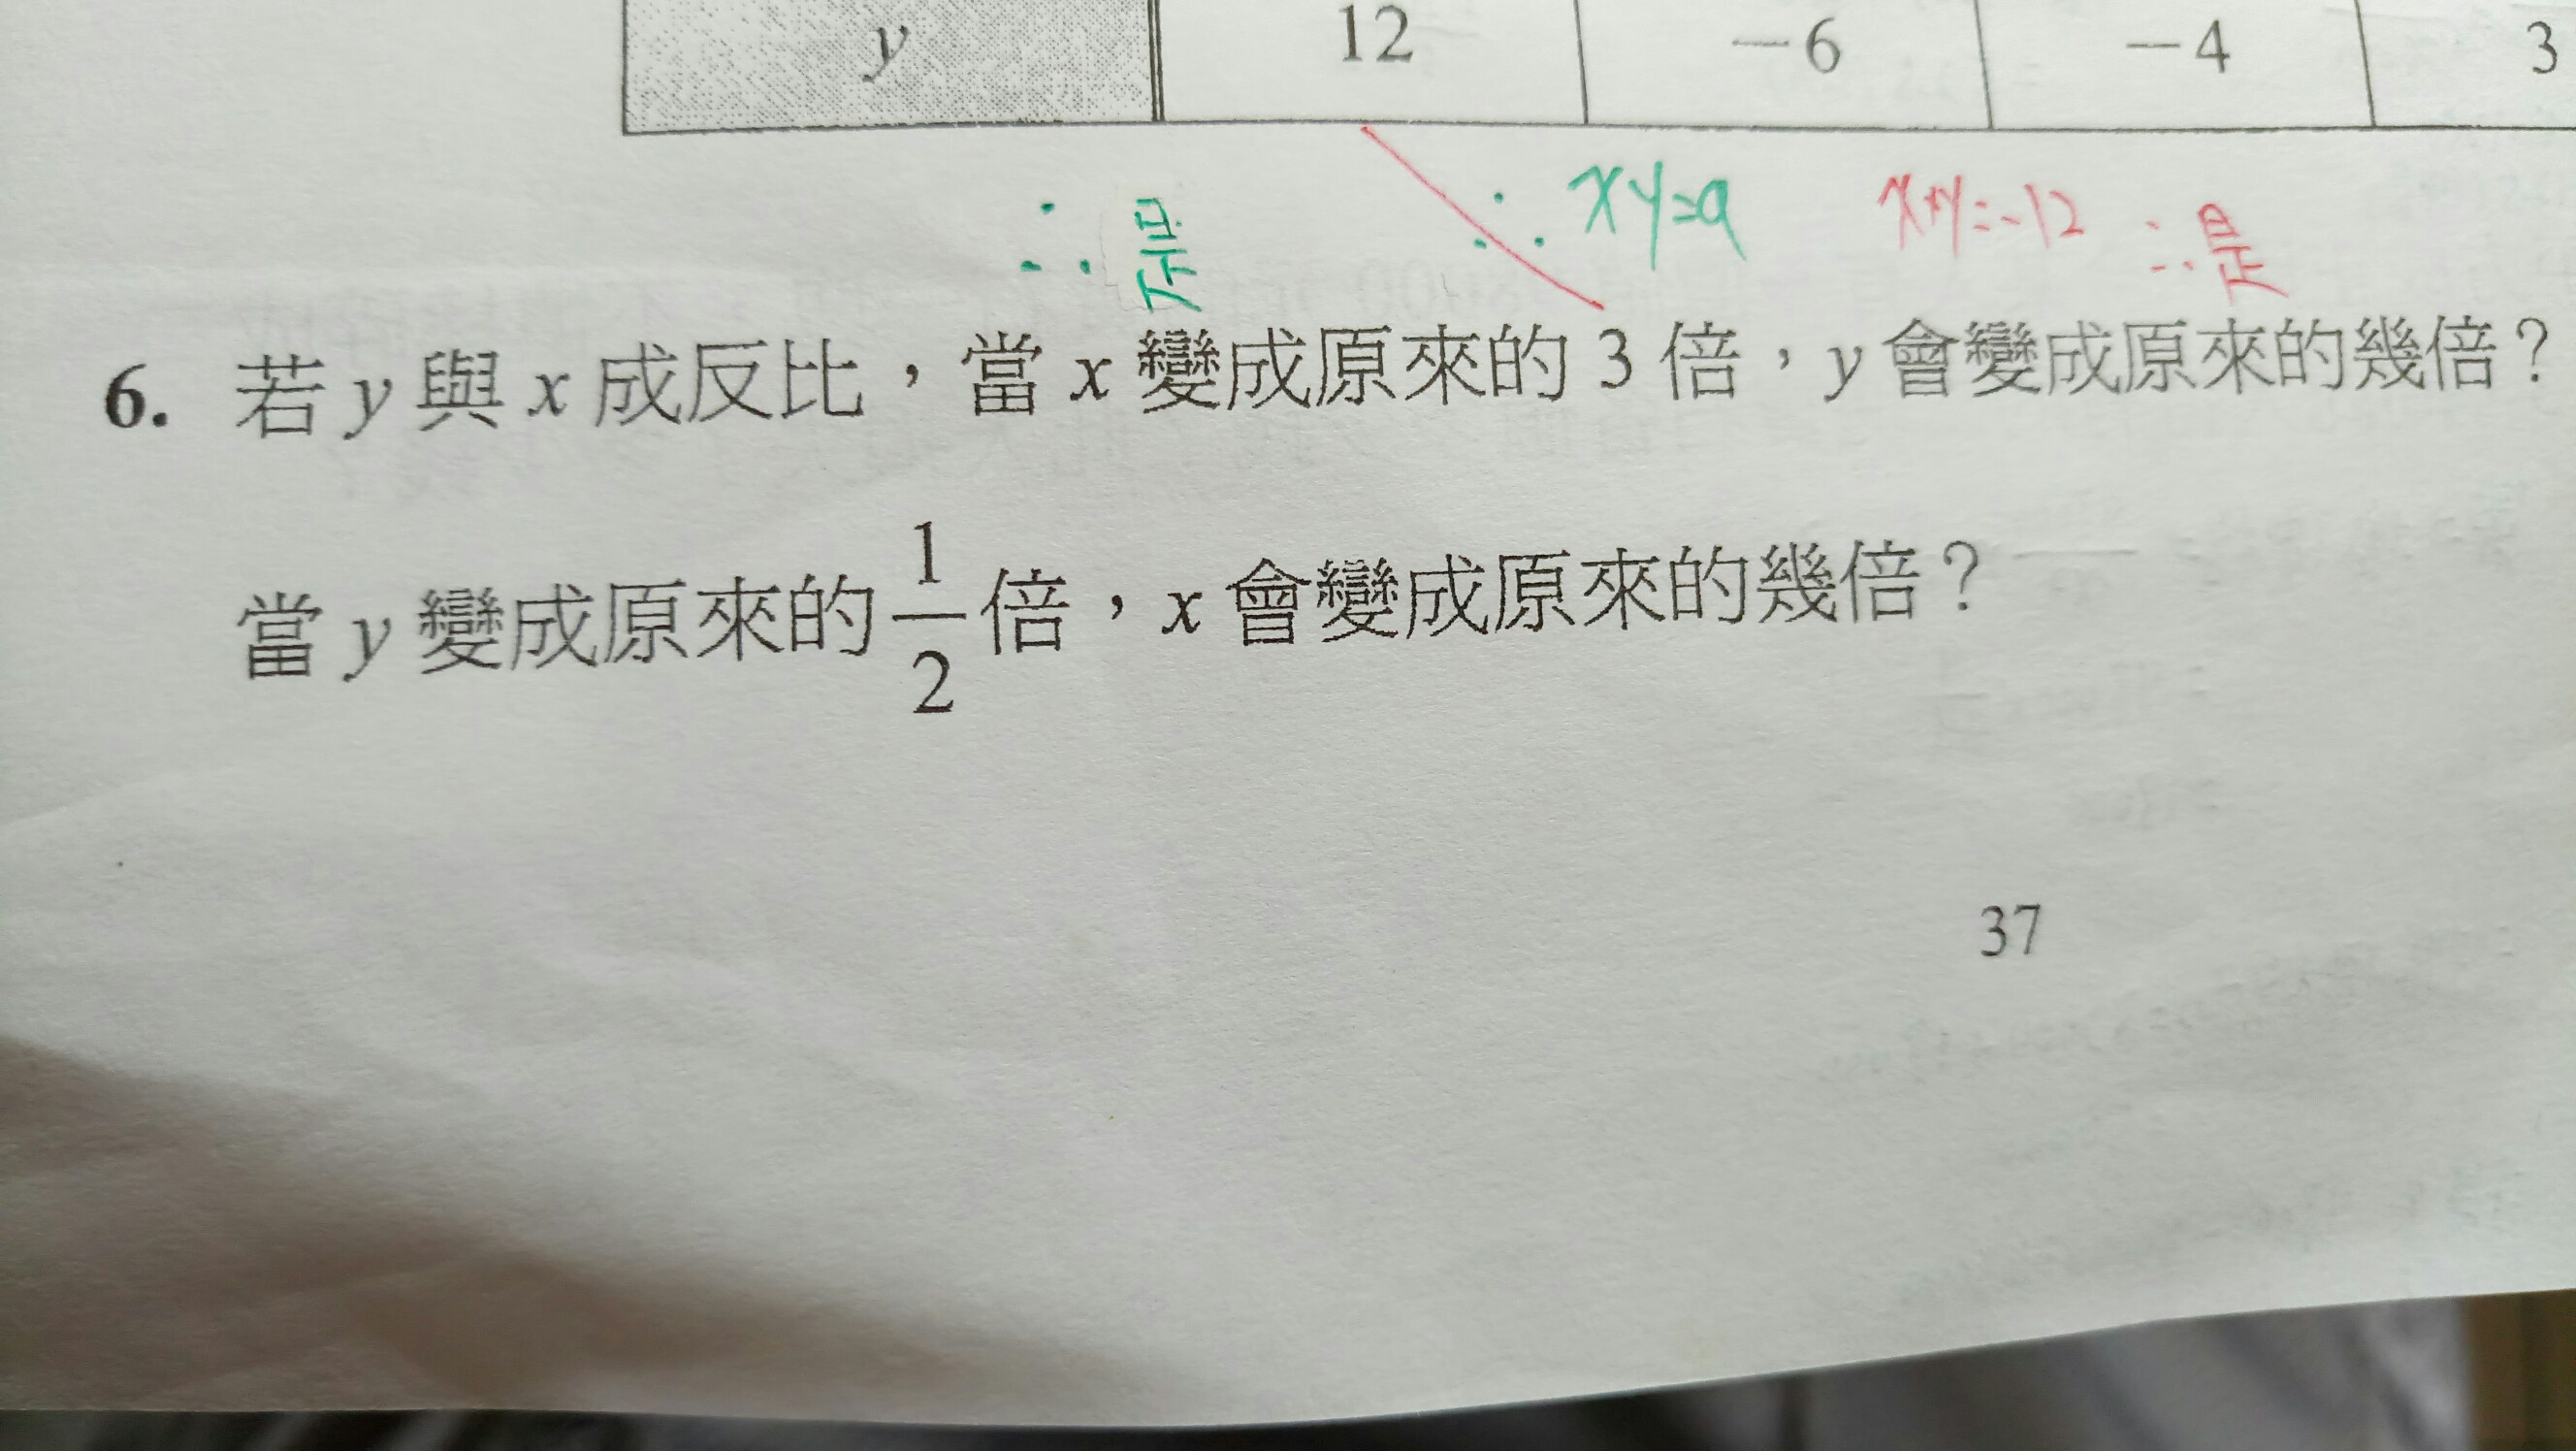 y 12 －6 －4 3
∴ xy=a x×y=-12 ∴是
6. 若 y 與 x 成反比，當 x 變成原來的 3 倍，y 會變成原來的幾倍？
當 y 變成原來的 1/2 倍，x 會變成原來的幾倍？
37